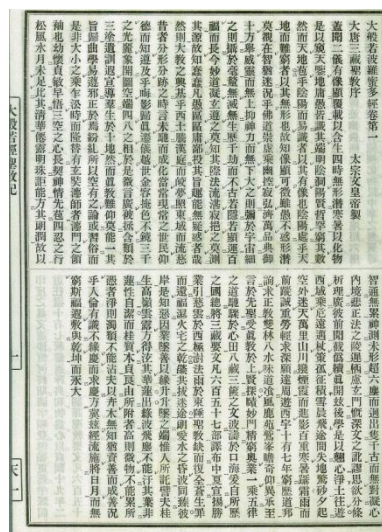 大般若波羅蜜多經卷第一
大唐三藏聖教序　太宗文皇帝製
蓋聞二儀有像顯覆載以含生四時無形潛寒暑以化物
是以窺天鑒地庸愚皆識其端明陰洞陽賢哲罕窮其數
然而天地苞乎陰陽而易識者以其有像也陰陽處乎天
地而難窮者以其無形也故知像顯可徵雖愚不惑形潛
莫覩在智猶迷況乎佛道崇虛乘幽控寂弘濟萬品典御
十方舉威靈而無上抑神力而無下大之則彌於宇宙細
之則攝於毫釐無滅無生歷千劫而不古若隱若顯運百
福而長今妙道凝玄遵之莫知其際法流湛寂挹之莫測
其源故知蠢蠢凡愚區區庸鄙投其旨趣能無疑惑者哉
然則大教之興基乎西土騰漢庭而皎夢照東域而流慈
昔者分形分跡之時言未馳而成化當常現常之世人仰
德而知遵及乎晦影歸眞遷儀越世金容掩色不鏡三千
之光麗象開圖空端四八之相於是微言廣被拯含類於
三途遺訓遐宣導羣生於十地然而眞教難仰莫能一其
旨歸曲學易遵邪正於焉紛糺所以空有之論或習俗而
是非大小之乘乍沿時而隆替有玄奘法師者法門之領
袖也幼懷貞敏早悟三空之心長契神情先苞四忍之行
松風水月未足比其清華僊露明珠詎能方其朗潤故以
智通無累神測未形超六塵而迥出隻千古而無對凝心
內境悲正法之陵遲栖慮玄門慨深文之訛謬思欲分條
析理廣彼前聞截僞續眞開茲後學是以翹心淨土往遊
西域乘危遠邁杖策孤征積雪晨飛途間失地驚砂夕起
空外迷天萬里山川撥煙霞而進影百重寒暑躡霜雨而
前蹤誠重勞輕求深願達周遊西宇十有七年窮歷道邦
詢求正教雙林八水味道餐風鹿苑鷲峯瞻奇仰異承至
言於先聖受眞教於上賢探賾妙門精窮奧業一乘五律
之道馳驟於心田八藏三篋之文波濤於口海爰自所歷
之國總將三藏要文凡六百五十七部譯布中夏宣揚勝
業引慈雲於西極注法雨於東陲聖教缺而復全蒼生罪
而還福濕火宅之乾燄共拔迷途朗愛水之昏波同臻彼
岸是知惡因業墜善以緣升升墜之端惟人所託譬夫桂
生高嶺雲露方得泫其華蓮出綠波飛塵不能汙其葉非
蓮性自潔而桂質本貞良由所附者高則微物不能累所
憑者淨則濁類不能沾夫以卉木無知猶資善而成善況
乎人倫有識不緣慶而求慶方冀茲經流施將日月而無
窮斯福遐敷與乾坤而永大
大般若經聖教記